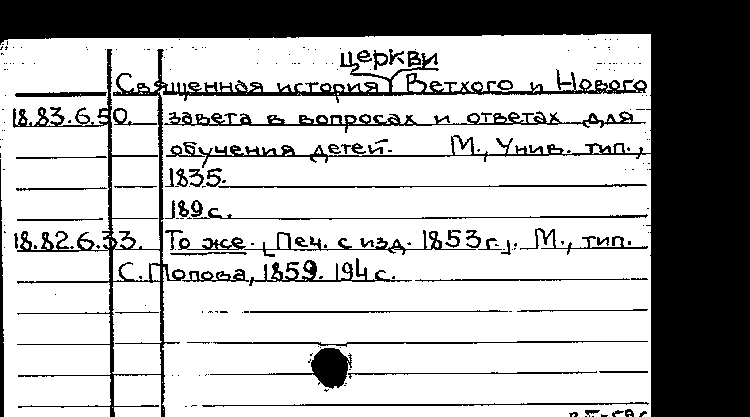 церкви
Священная история Ветхого и Нового
18.83.6.50. завета в вопросах и ответах для
обучения детей. М., Унив. тип.,
1835.
189 с.
18.82.6.33. То же. [Печ. с изд. 1853 г.]. М., тип.
С. Попова, 1859. 194 с.